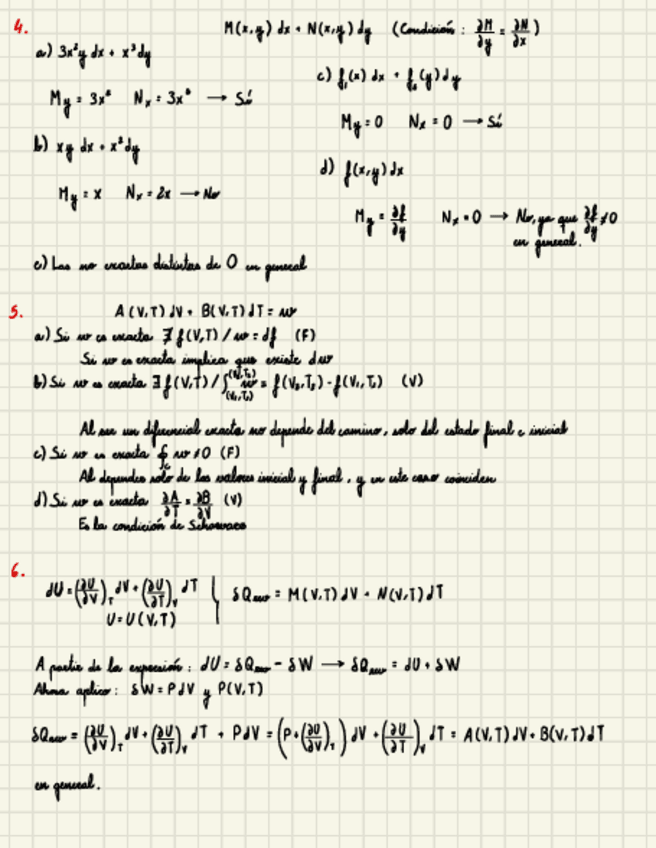 4.
M(x,y) dx + N(x,y) dy (Condición: ∂M/∂y = ∂N/∂x)
a) 3x²y dx + x³dy
My = 3x² Nx = 3x² → Sí
b) xy dx + x²dy
My = x Nx = 2x → No
c) f₁(x) dx + f₂(y) dy
My = 0 Nx = 0 → Sí
d) f(x,y) dx
My = ∂f/∂y Nx = 0 → No, ya que ∂f/∂y ≠ 0
en general.
e) Las no exactas distintas de 0 en general
5.
A(V,T) dV + B(V,T) dT = w
a) Si w es exacta ∄ f(V,T) / w = df (F)
Si w es exacta implica que existe dw
b) Si w es exacta ∃ f(V,T) / ∫ w = f(V₂,T₂) - f(V₁,T₁) (V)
Al ser un diferencial exacta no depende del camino, solo del estado final e inicial
c) Si w es exacta ∮ w ≠ 0 (F)
Al depender solo de los valores inicial y final, y en este caso coinciden
d) Si w es exacta ∂A/∂T = ∂B/∂V (V)
Es la condición de Schwarz
6.
dU = (∂U/∂V)_T dV + (∂U/∂T)_V dT
U = U(V,T)
δQ = M(V,T) dV + N(V,T) dT
A partir de la expresión: dU = δQ - δW → δQ = dU + δW
Ahora aplico: δW = PdV y P(V,T)
δQ = (∂U/∂V)_T dV + (∂U/∂T)_V dT + PdV = (P + (∂U/∂V)_T) dV + (∂U/∂T)_V dT = A(V,T) dV + B(V,T) dT
en general.